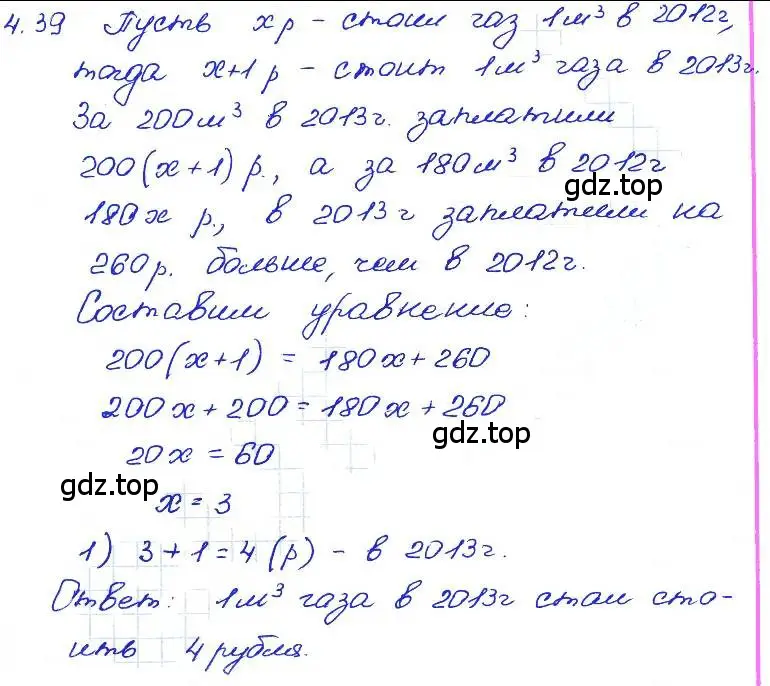 4.39 Пусть x р - стоил газ 1м³ в 2012г,
тогда x+1 р - стоит 1м³ газа в 2013г.
За 200м³ в 2013г. заплатили
200(x+1) р., а за 180м³ в 2012г
gdz.top
180x р., в 2013г заплатили на
260р. больше, чем в 2012г.
Составим уравнение:
200(x+1) = 180x+260
200x+200=180x+260
gdz.top
20x = 60
gdz.top
x = 3
1) 3+1=4 (р) - в 2013г.
Ответ: 1м³ газа в 2013г стал сто-
ить 4 рубля.